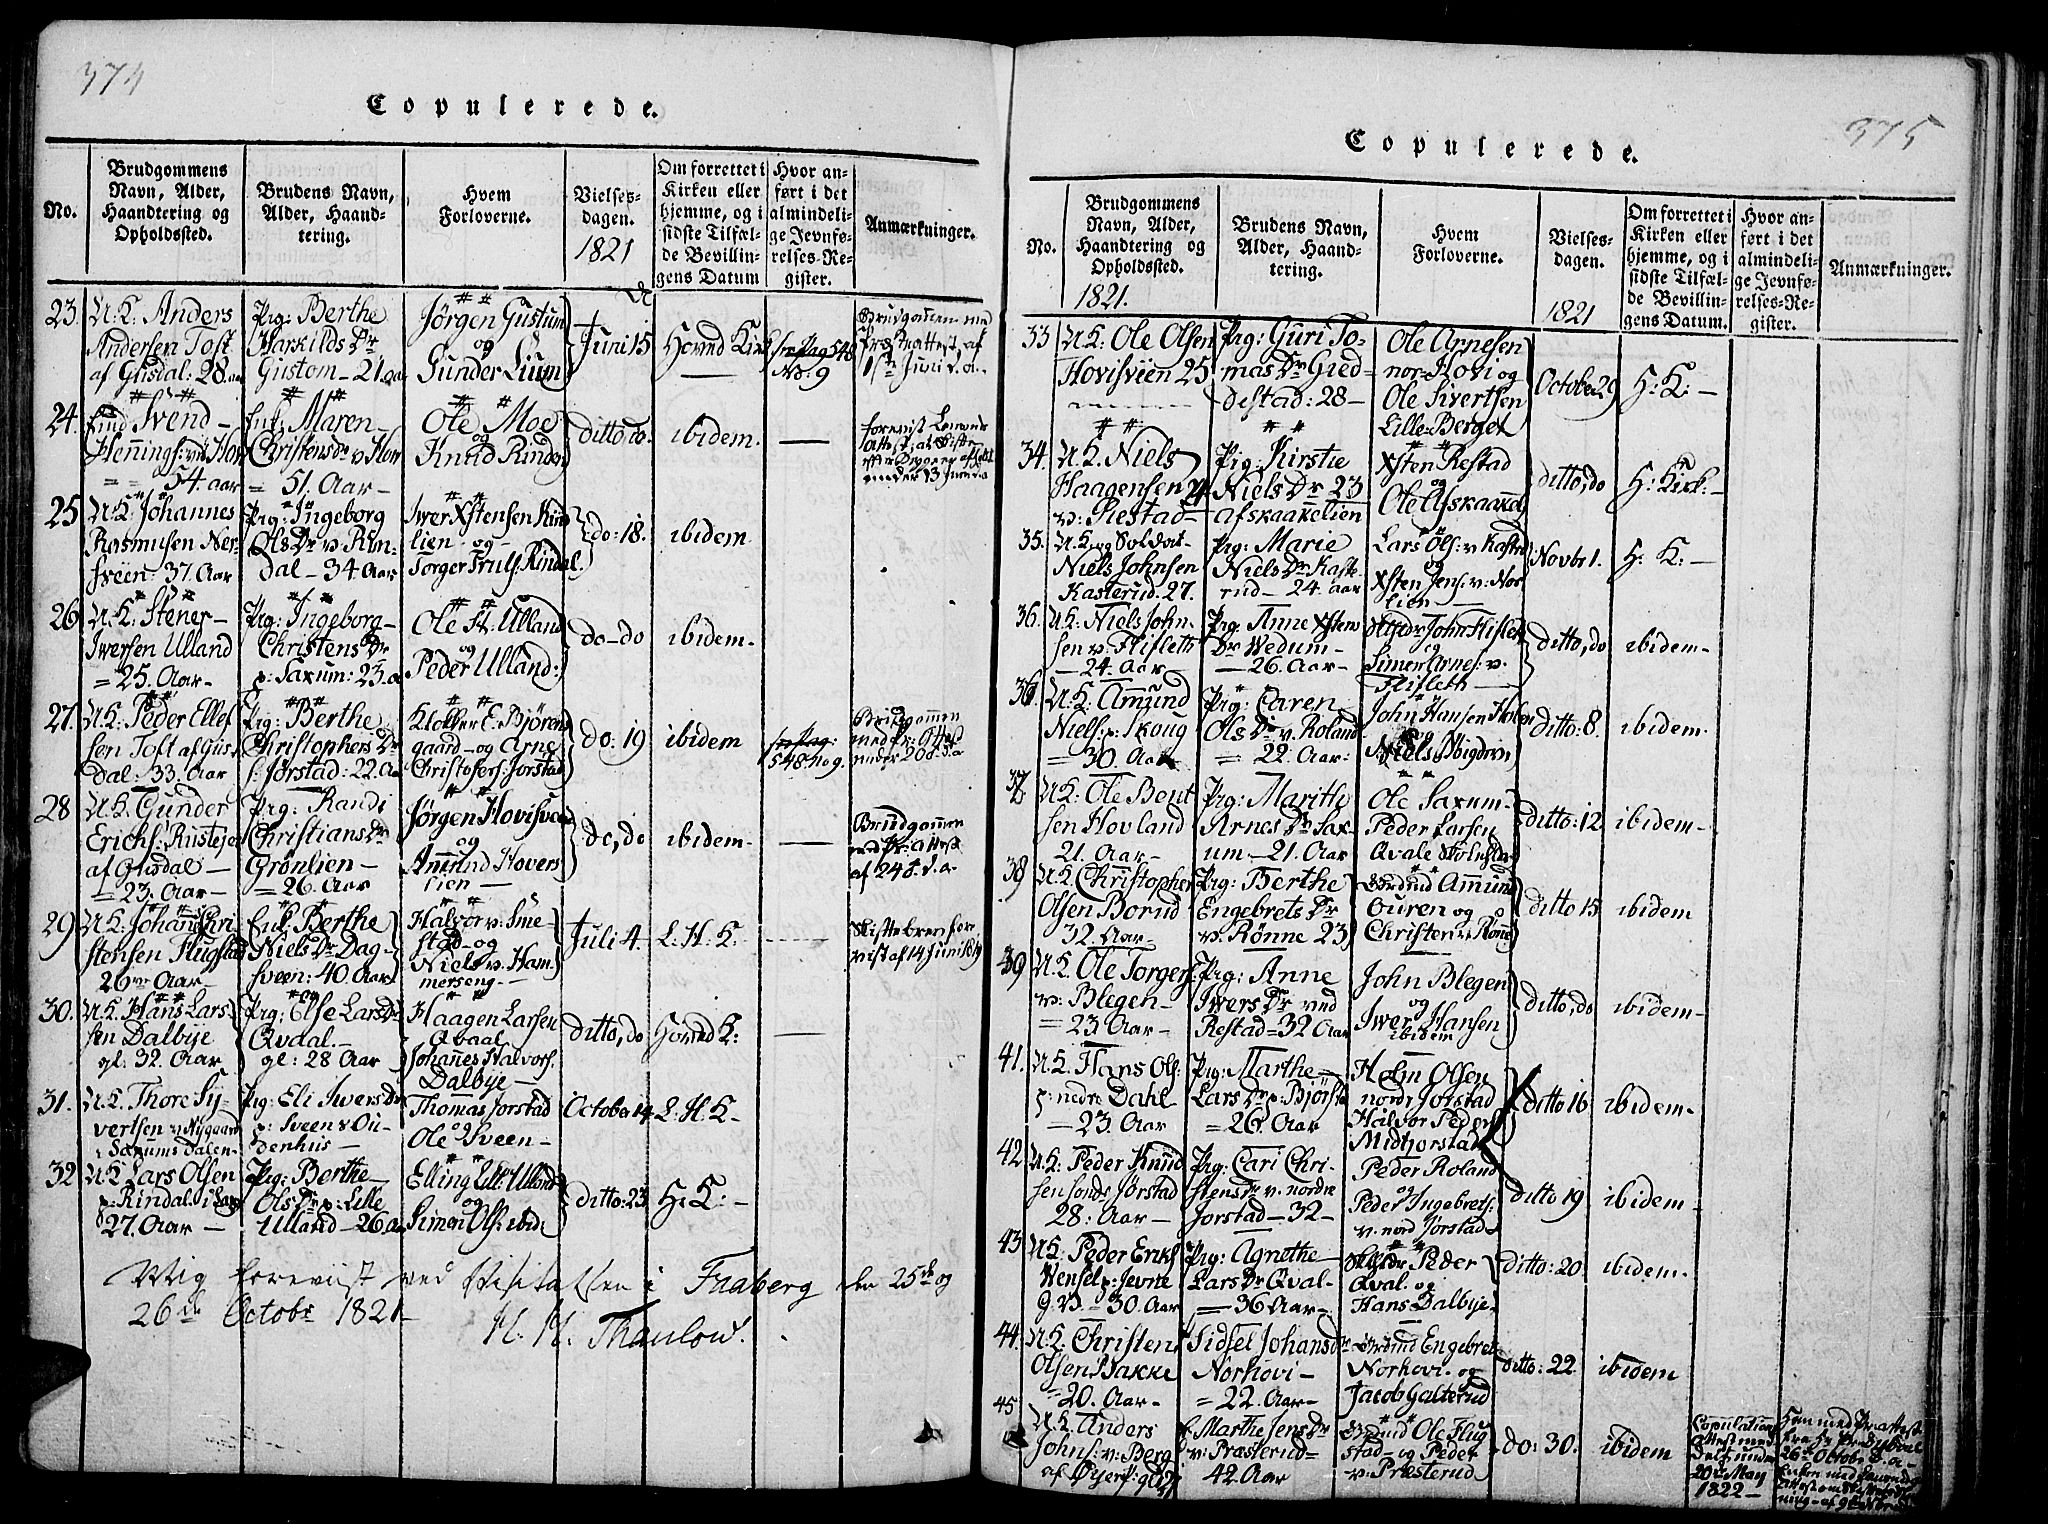 374
Copulerede.
No.
Brudgommens
Navn, Alder,
Haandtering og
Opholdssted.
Brudens Navn,
Alder, Haand-
tering.
Hvem
Forloverne.
Vielses-
dagen.
1821
Om forrettet i
Kirken eller
hjemme, og i
sidste Tilfæl-
de Bevillin-
gens Datum
Hvor an-
ført i det
almindeli-
ge Jevnfø-
relses-Re-
gister.
Anmærkninger.
23.
U. K. Anders
Andersen Toft
af Gusdal: 28 aar
Pig: Berthe
Harkilds Dr
Gustom - 21. aar
Jørgen Gustum
og
Gunder Lium
Juni 15
Hoved Kirk
see Pag 548
No. 9
Brudgommen med
Præsteattest. af
1ste Juni d. a.
24.
Enk: Svend
Hennings: v: Hov
= = 54. aar
Enk. Maren
Christens dr v Hov
= 51. Aar -
Ole Moe
og
Knud Rinden
ditto, do.
ibidem.
25
U. K: Johannes
Rasmusen Ner-
sveen: 37. Aar
Pig: Ingeborg
Ols Dr v. Rin-
dal - 34. Aar
Iwer Xstensen Rind
lien - og -
Torger Truls. Rindal.
do: 18.
ibidem
26
U. K: Stener
Iwersen Ulland
= 25. Aar -
Pig: Ingeborg
Christens Dr
p: Saxum: 23. a
Ole St: Ulland
og
Peder Ulland:
do - do
ibidem -
27.
U. K: Peder Ellef
sen Toft af Gus-
dal: 33. Aar
Pig: Berthe
Christophers Dr
s: Jørstad: 22. Aar
Klokker E. Bjørens
gaard - og Arne
Christofers: Jørstad
do: 19
ibidem
see Pag:
548 No 9.
Brudgommen
med Pr: Attest
under 20 d. a
28
U. K. Gunder
Erichs: Rustejer
af Gusdal -
= 23. Aar -
Pig: Randi
Christians Dr
Grønlien -
= 26. Aar
Jørgen Hovisveen
og
Amund Hovers
lien -
do, do
ibidem -
Brudgommen
med Pr: Attest
af 24 d. a.
29
U. K: Johan Chri
stensen Flugstad
26 Aar
Enk. Berthe
Niels Dr Dag-
sveen: 40 Aar
Halvor v: Sme
stad - og
Niels v. Ham
merseng -
Juli 4.
L. H. K:
Skiftebrev fore
vist af 14 Juni 1819
30.
U. K. Hans Lars
sen Dalbye
gl: 32. Aar
Pig: Else Lars Dr
Qvdal.
gl: 28 Aar
Haagen Larsen
Qvaal
Johannes Halvors.
Dalbye -
ditto, do
Hoved K:
31.
U. K. Thore Sy-
vertsen v Nygaard
i Saxumsdalen -
Pig: Eli Iwers Dr
p: Sveen v Ou-
denhus -
Thomas Jørstad
og
Ole Sveen -
October 14
L. H. K -
32
U. K Lars Olsen
p: Rindal i
27. Aar -
Pig: Berthe
Ols Dr p: Lille
Ulland - 26. a
Elling Lill: Ulland
og
Simon Ols: ibid:
ditto: 23
H. K: -
Mig forevist ved Visitatsen i Faaberg den 25de og
26de Octobr 1821 -
H. H. Thaulow.
375
Copulerede.
No.
Brudgommens
Navn, Alder,
Haandtering og
Opholdssted.
1821.
Brudens Navn,
Alder, Haand-
tering.
Hvem
Forloverne.
Vielses-
dagen.
1821
Om forrettet i
Kirken eller
hjemme, og i
sidste Tilfæl-
de Bevillin-
gens Datum.
Hvor an-
ført i det
almindeli-
ge Jevnfø-
relses-Re-
gister.
Anmærkninger.
33
U K: Ole Olsen
Hovisvéen 25
Pig: Guri To-
mas Dr Gied-
destad: 28 -
Ole Arnesen
nor - Hovi og
Ole Sivertsen
Lille-Berget
October 29
H: K: -
34.
U. K. Niels
Haagensen 24
v: Siestad -
Pig: Kirstie
Niels Dr 23
af skaakelien
Xsten Restad
og
Ole Af skaakel
ditto, do
H: Kirk: -
35.
U. K. og Soldat -
Niels Johnsen
Kasterud. 27.
Pig: Marie
Niels Dr Kaste-
rud - 24. Aar
Lars Ols: v Kastru
og
Xsten Jens: v: Nor
lien -
Novbr 1.
H: K: -
36.
U: K: Niels John-
sen v: Flisleth
- 24. Aar -
Pig. Anne Xsten
Dr Wedum -
- 26. Aar -
John Flisleth
og
Simen Arnes: v.
Flisleth -
ditto, do
ibidem -
36
U. K: Amund
Niels: p: Skoug
= 30. Aar
Pig: Caren
Ols Dr v. Roland
= 22. Aar:
John Hansen Holen
og
Niels
ditto: 8.
ibidem
37
U. K: Ole Bent
sen Hovland
21. Aar -
Pig: Marithe
Arnes Dr Sax-
um - 21. Aar
Ole Saxum -
Peder Larsen
Qvale
ditto: 12.
ibidem -
38
U. K. Christopher
Olsen Borud
32. Aar -
Pig: Berthe
Engebrets Dr
v. Rønne 23
Amund
Ouren og
Christen v. Rønne
ditto 15
ibidem
39
U. K. Ole Torgers.
v: Blegen -
= 23 Aar -
Pig: Anne
Iwers Dr ved
Restad = 32 Aar
John Blegen
og
Iwer Hansen
ibidem
ditto, do
ibidem -
41.
U. K. Hans Ols.
p: nedre Dahl
- 23. Aar
Pig: Marthe
Lars Dr p: Bjørsta
= 26. Aar
Holm Olsen
nordr Jørstad
Halvor Peders
Midtjorstad
ditto 16
ibidem -
42
U. K: Peder Knud
sen sondr Jørstad
28: Aar -
Pig: Cari Chri-
stens dr v. nordre
Jorstad - 32 -
Peder Roland
og
Peder Ingebrets:
v: nord Jørstad
ditto 19
ibidem -
43
U K: Peder Eriks
Wensel p: Jevne
G. B. - 30. Aar
Pig: Agnethe -
Lars Dr Qval-
= 36 Aar -
Peder
Qval. og
Hans Dalbye.
ditto: 20.
ibidem -
44.
U. K: Christen
Olsen Bakke
= 20. Aar -
Sidsel Johans dr
Norhovi -
= 22. Aar -
Engebret
Norhovi - og
Jacob Galterud
ditto: 22.
ibidem
45
U. K. Anders
Johns: v: Berg
af Øyer p: g
E. Marthe Jens Dr
v: Præsterud -
42. Aar
Ole Flug
stad - og Peder
v: Præsterud
do: 30.
ibidem
Copulations
Attest med
delt under
20de May
1822 -